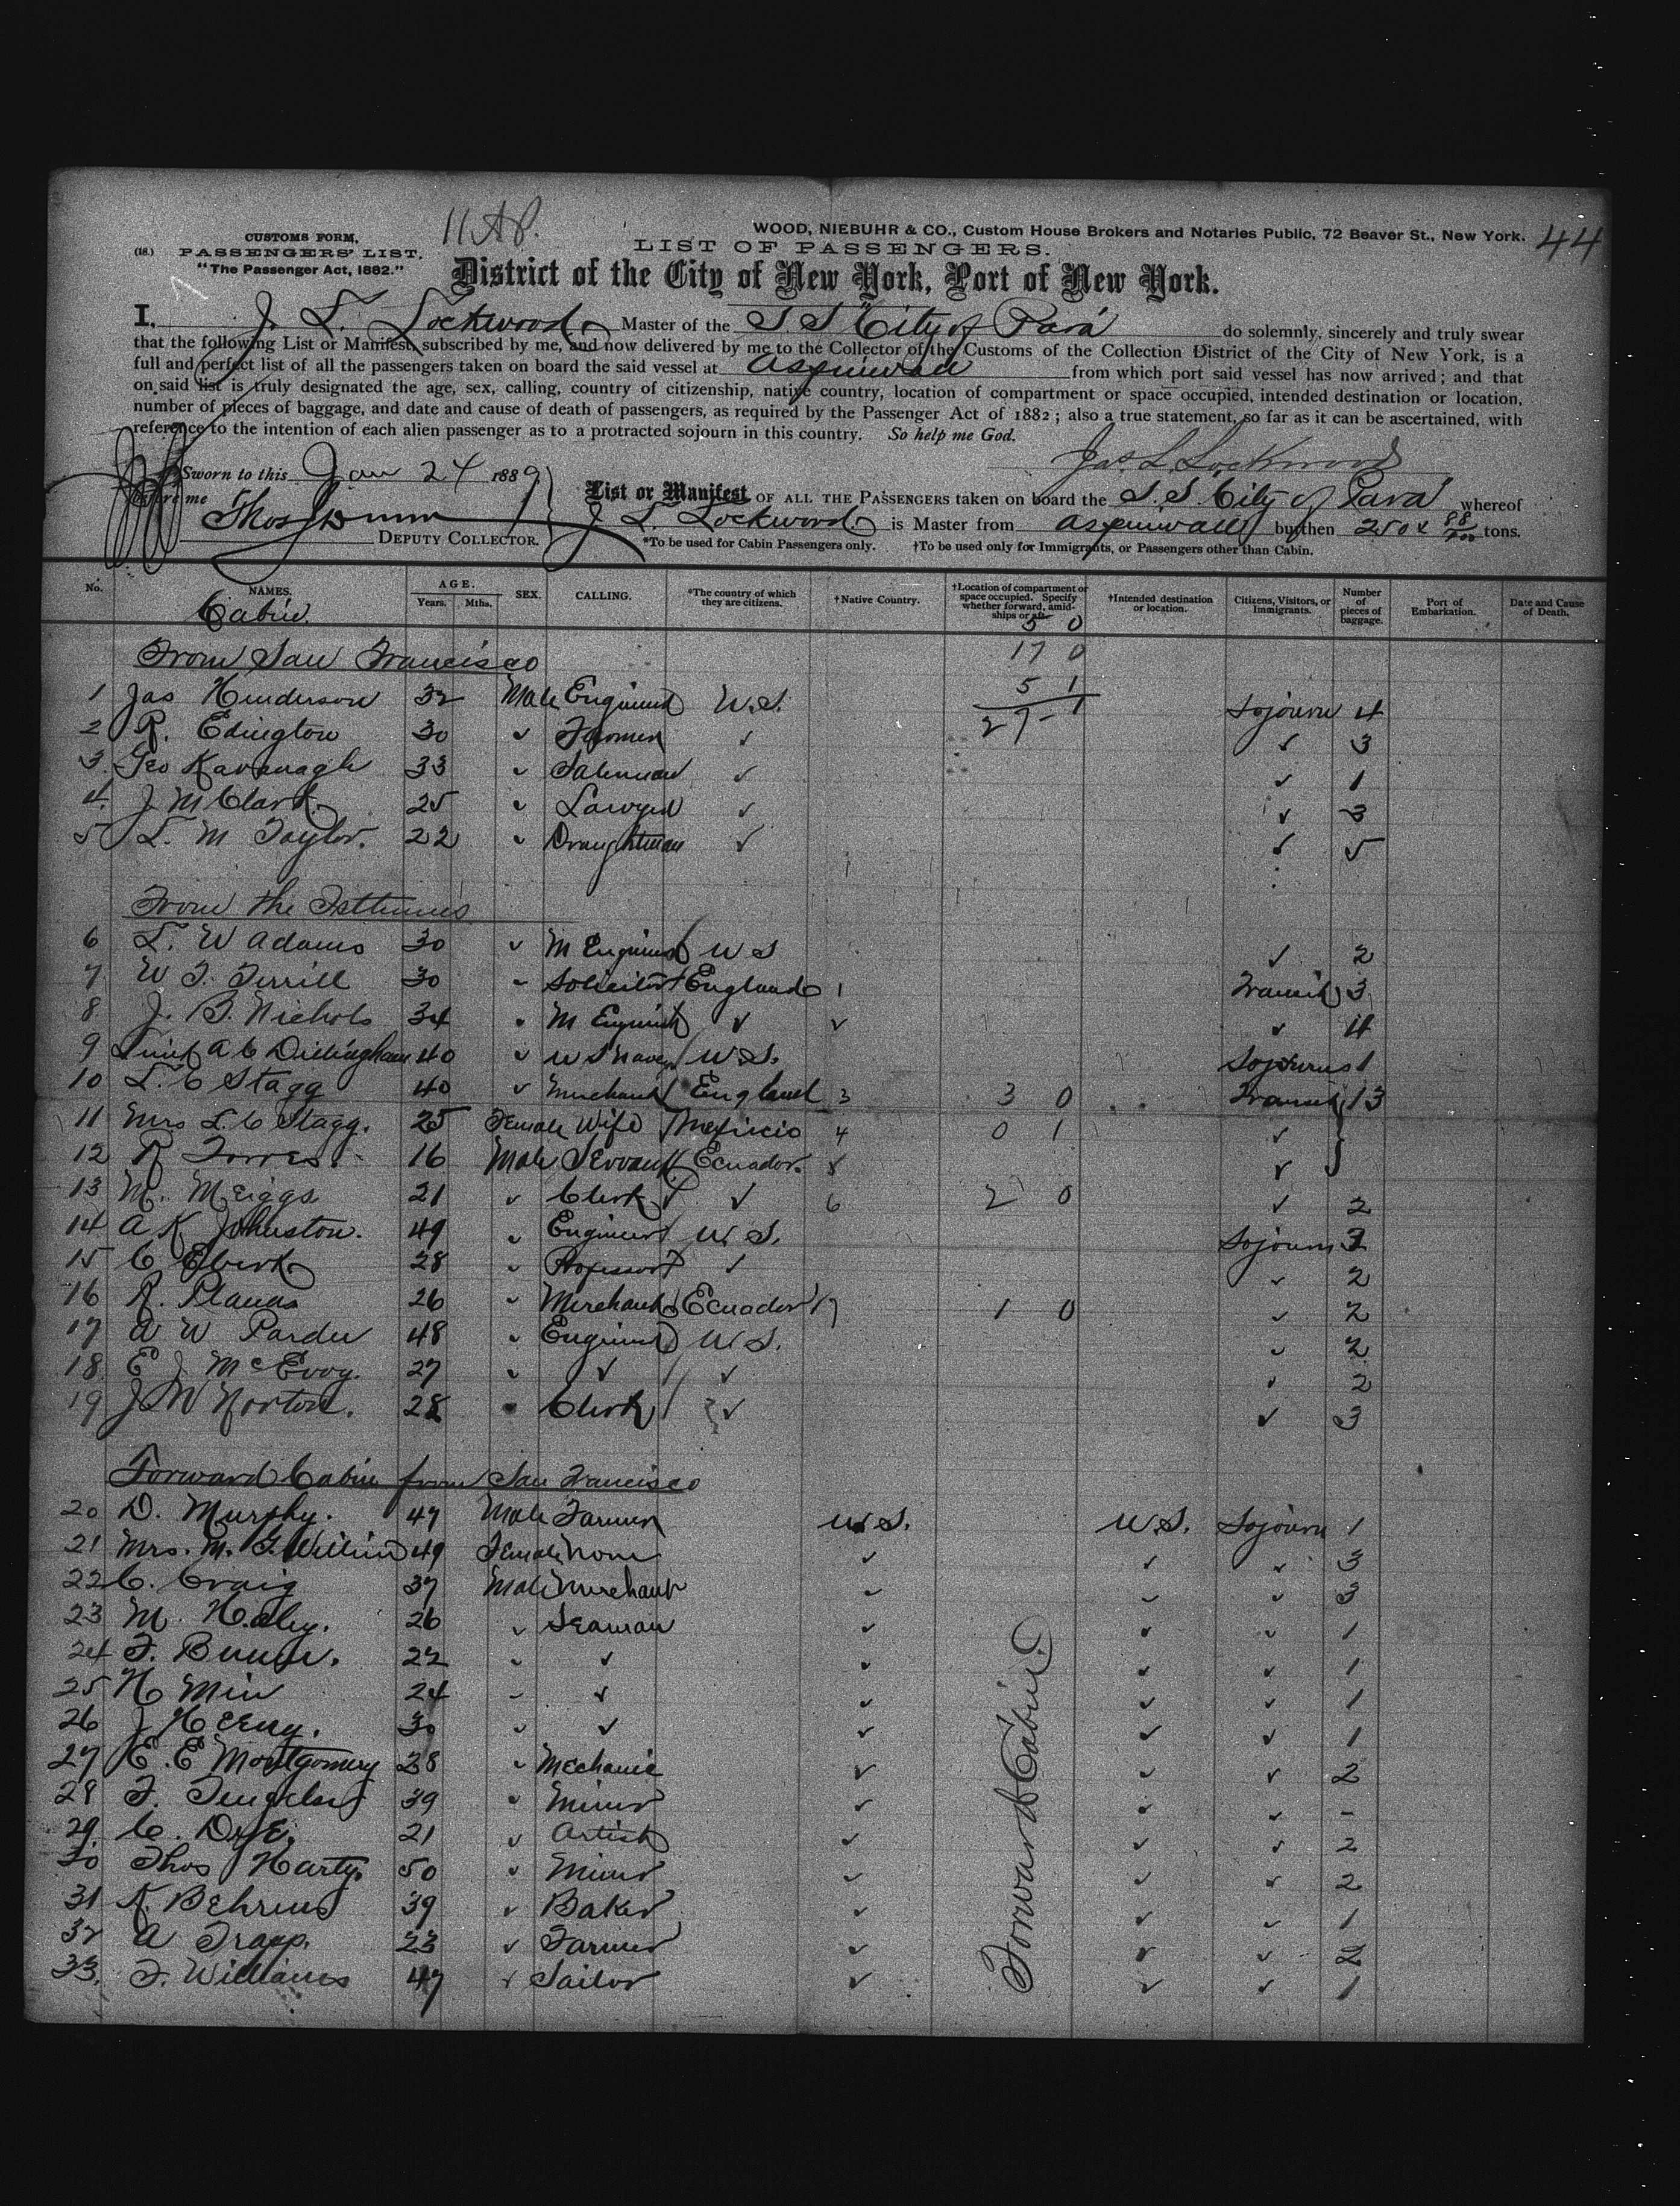 11 A8.
44
WOOD, NIEBUHR & CO., Custom House Brokers and Notaries Public, 72 Beaver St., New York.
CUSTOMS FORM,
(18.) PASSENGERS' LIST.
"The Passenger Act, 1882."
LIST OF PASSENGERS.
District of the City of New York, Port of New York.
I, J. L. Lockwood Master of the S.S "City of Pará do solemnly, sincerely and truly swear
that the following List or Manifest, subscribed by me, and now delivered by me to the Collector of the Customs of the Collection District of the City of New York, is a
full and perfect list of all the passengers taken on board the said vessel at Aspinwall from which port said vessel has now arrived; and that
on said list is truly designated the age, sex, calling, country of citizenship, native country, location of compartment or space occupied, intended destination or location,
number of pieces of baggage, and date and cause of death of passengers, as required by the Passenger Act of 1882; also a true statement, so far as it can be ascertained, with
reference to the intention of each alien passenger as to a protracted sojourn in this country. So help me God.
Jas L Lockwood
Sworn to this Jan 24 1889
before me
Thos Dunn
DEPUTY COLLECTOR.
List or Manifest OF ALL THE PASSENGERS taken on board the S.S. City of Pará whereof
J L. Lockwood is Master from Aspinwall burthen 250 88/100 tons.
*To be used for Cabin Passengers only. †To be used only for Immigrants, or Passengers other than Cabin.
No. NAMES. AGE. Years. Mths. SEX. CALLING. *The country of which they are citizens. †Native Country. †Location of compartment or space occupied. Specify whether forward, amidships or aft. †Intended destination or location. Citizens, Visitors, or Immigrants. Number of pieces of baggage. Port of Embarkation. Date and Cause of Death.
Cabin
5 0
From San Francisco 17 0
5 1
1 Jas Henderson 32 Male Engineer U.S. Sojourn 4
27 - 1
2 R. Edington 30 ✓ Farmer ✓ ✓ 3
3. Geo Kavanagh 33 ✓ Salesman ✓ ✓ 1
4. J M Clark 25 ✓ Lawyer ✓ ✓ 3
5 L. M Taylor. 22 ✓ Draughtman ✓ ✓ 5
From the Isthmus
6 L. W Adams 30 ✓ M Engineer U S ✓ 2
7 W T. Terrill 30 ✓ Solicitor England 1 Transit 3
8. J. B. Nichols 34 ✓ M Engineer ✓ ✓ ✓ 4
9 Lieut A C Dillingham 40 ✓ U S Navy U.S. Sojourns 1
10 L. C Stagg 40 ✓ Merchant England 3 3 0 Transit 13
11 Mrs L. C Stagg. 25 Female Wife Mexico 4 0 1 ✓
12 R Torres. 16 Male Servant Ecuador. 5 ✓
13 M. Meiggs 21 ✓ Clerk ✓ 6 2 0 ✓ 2
14 A K Johnston. 49 ✓ Engineer U.S. Sojourn 3
15 C Eberk 28 ✓ Professor ✓ ✓ 2
16 R. Planas 26 ✓ Merchant Ecuador 7 1 0 ✓ 2
17 A W Pardee 48 ✓ Engineer U.S. ✓ 2
18. E J McEvoy. 27 ✓ ✓ ✓ ✓ 2
19 J W Norton. 28 ✓ Clerk ✓ ✓ 3
Forward Cabin from San Francisco
20 D. Murphy. 47 Male Farmer U.S. U.S. Sojourn 1
21 Mrs. M. G. 49 Female None ✓ ✓ ✓ 3
22 C. Craig 37 Male Merchant ✓ ✓ ✓ 3
23 M. Healy. 26 ✓ Seaman ✓ ✓ ✓ 1
24 F. 22 ✓ ✓ ✓ ✓ ✓ 1
25 H Min 24 ✓ ✓ ✓ ✓ ✓ 1
26 J 30 ✓ ✓ ✓ ✓ ✓ 1
27 E. E Montgomery 28 ✓ Mechanic ✓ ✓ ✓ 2
28 F. 39 ✓ Miner ✓ ✓ ✓ -
29. C. 21 ✓ Artist ✓ ✓ ✓ 2
30 Thos Harty. 50 ✓ Miner ✓ ✓ ✓ 2
31 K. Behrens 39 ✓ Baker ✓ ✓ ✓ 1
32 A Trapp. 23 ✓ Farmer ✓ ✓ ✓ 2
33. F. Williams 47 ✓ Sailor ✓ ✓ ✓ 1
Forward Cabin.